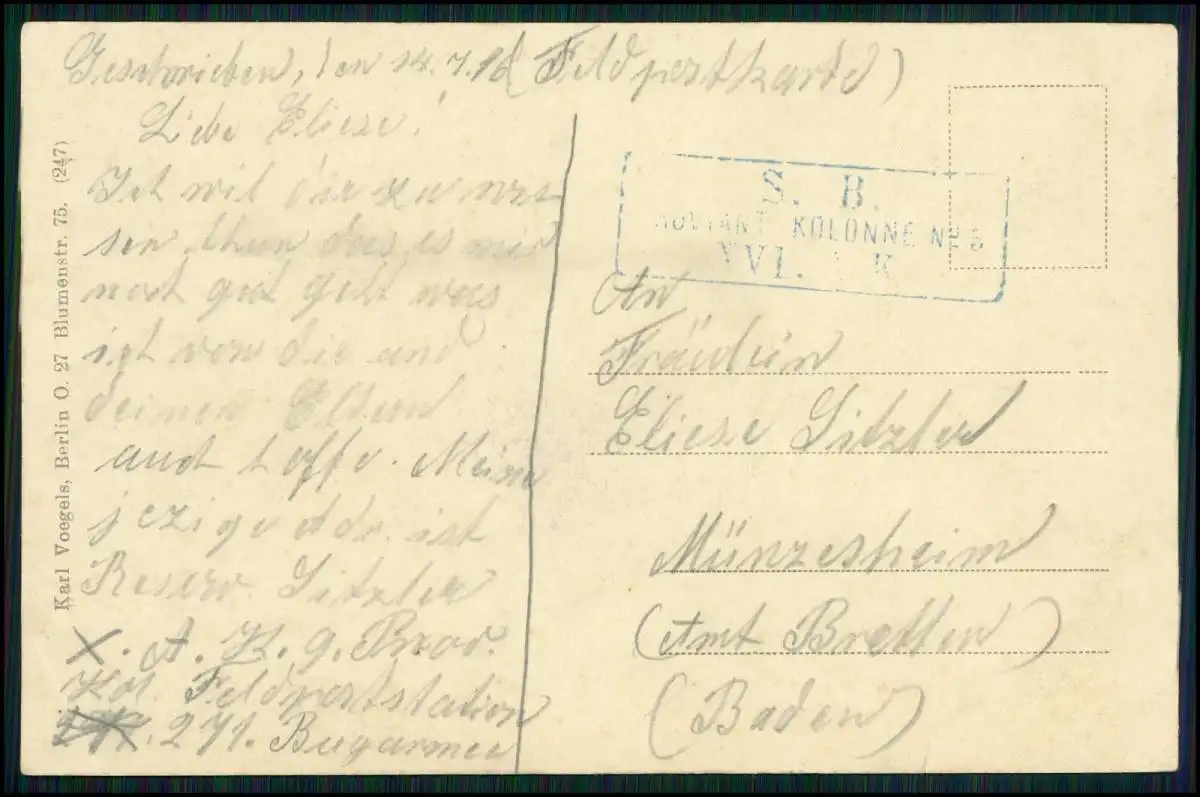 Geschrieben, den 14.7.16 (Feldpostkarte)
Liebe Eliese!
Ich wil dir zu
thun das es mir
noch gut geht was
ich von die und
deinen Eltern
auch hoffe. Meine
jezige Adr. ist
Reserv. Sitzler
X. A. K. 9. Prov.
Kol. Feldpoststation
271. Bugarmee
S. B.
KOLONNE No 5
XVI. K
An
Fräulein
Eliese Sitzler
Münzesheim
(Amt Bretten)
(Baden)
Karl Voegels, Berlin O. 27 Blumenstr. 75. (247)